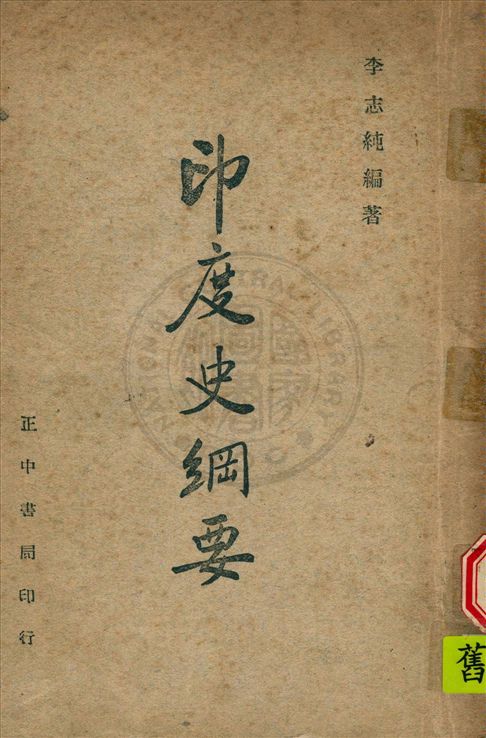 李志純編著
印度史綱要
正中書局印行
舊
NATIONAL CENTRAL LIBRARY